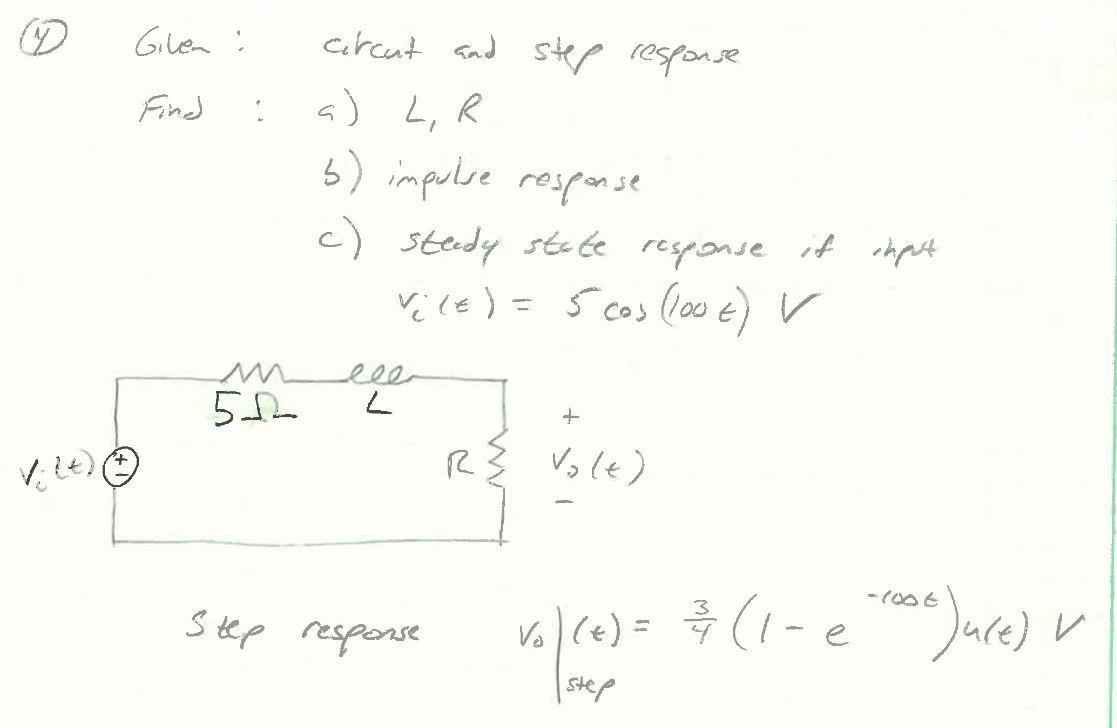 ④ Given : circut and step response
Find : a) L, R
b) impulse response
c) steady state response if input
v_i(t) = 5 cos(100t) V
5Ω L
v_i(t) + − R + v_o(t) −
Step response v_o|_step (t) = 3/4 (1 - e^{-100t})u(t) V